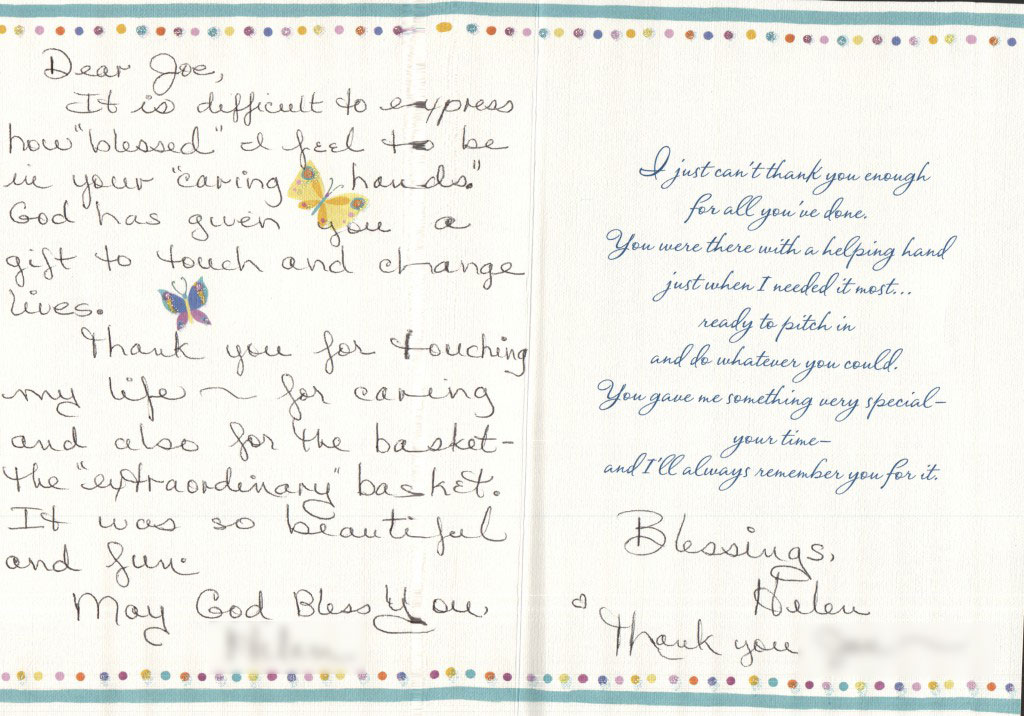 Dear Joe,
It is difficult to express
how "blessed" I feel to be
in your "caring hands."
God has given you a
gift to touch and change
lives.
Thank you for touching
my life ~ for caring
and also for the basket-
the "extraordinary" basket.
It was so beautiful
and fun.
May God Bless You
I just can't thank you enough
for all you've done.
You were there with a helping hand
just when I needed it most...
ready to pitch in
and do whatever you could.
You gave me something very special—
your time—
and I'll always remember you for it.
Blessings,
Helen
Thank you